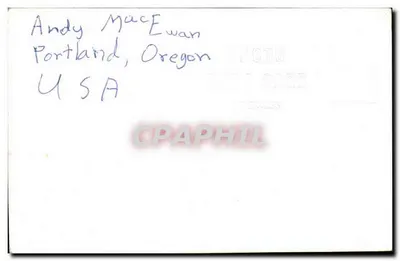 Andy MacEwan
Portland, Oregon
USA
CPAPHIL